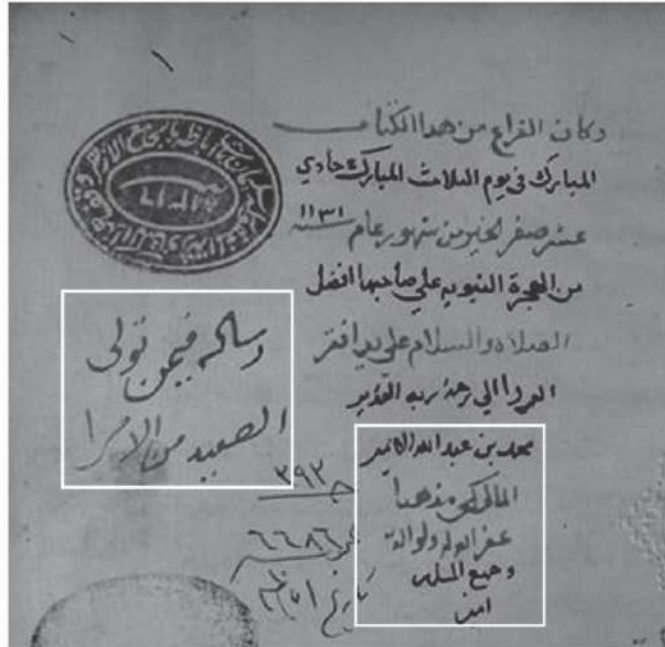 وكان الفراغ من هدا الكتاب
المبارك فى يوم الثلاث المبارك حادي
عشر صفر الخير من شهور عام ١١٣١
من الهجرة النبويه علي صاحبها افضل
الصلاه والسلام على يد افقر
الورا الي رحمة ربه القدير
محمد بن عبد الله
المالكي مذهبا
غفر الله له ولوالديه
وجميع المسلمين
امين
رساله فيمن تولى
الصعيد من الامرا
٣٩٣
٦٦٨٦
تاريخ اباظه